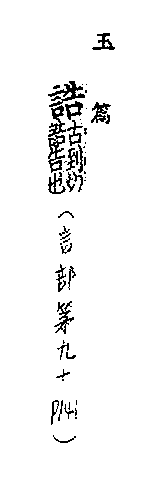 玉篇
誥
古到切
告也
(言部第九十
P141)